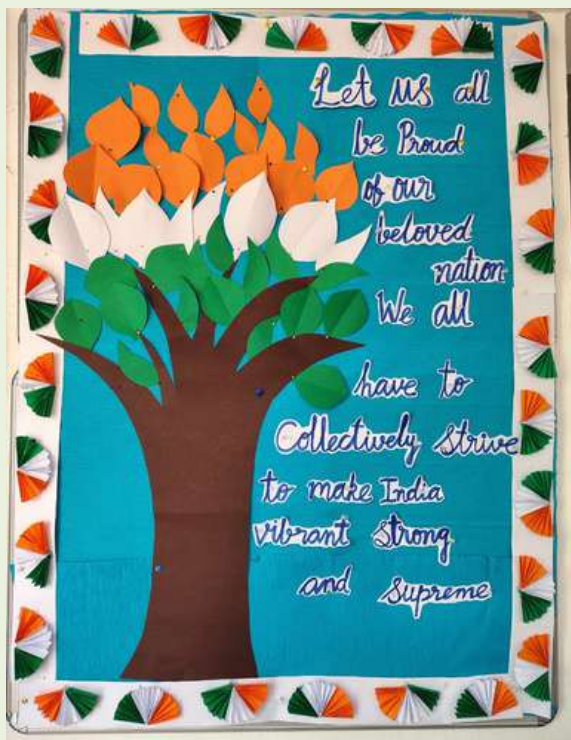 Let us all
be Proud
of our
beloved
nation
We all
have to
Collectively strive
to make India
vibrant strong
and supreme